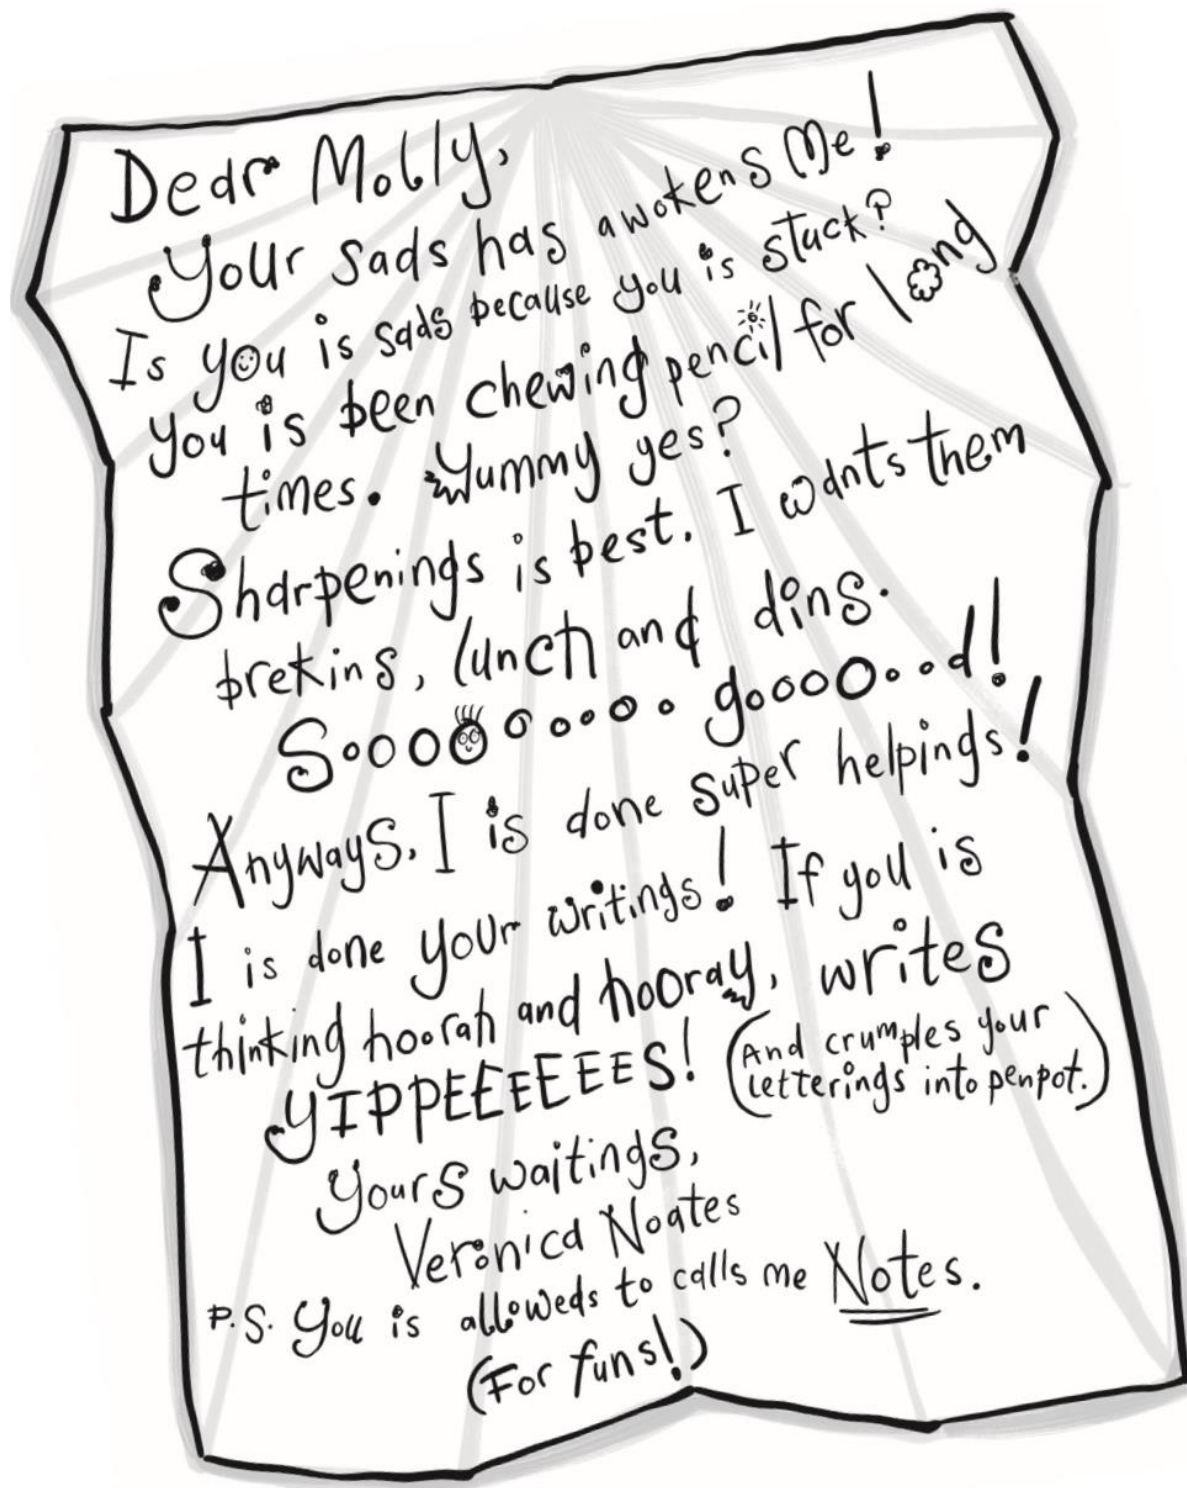 Dear Molly,
Your sads has awokens Me!
Is you is sads because you is stuck?
you is been chewing pencil for long
times. Yummy yes?
Sharpenings is best. I wants them
brekins, lunch and dins.
Sooooooooo goooooood!
Anyways, I is done super helpings!
I is done your writings! If you is
thinking hoorah and hooray, writes
YIPPEEEEEES! (And crumples your
letterings into penpot.)
Yours waitings,
Veronica Noates
P.S. You is alloweds to calls me Notes.
(For funs!)